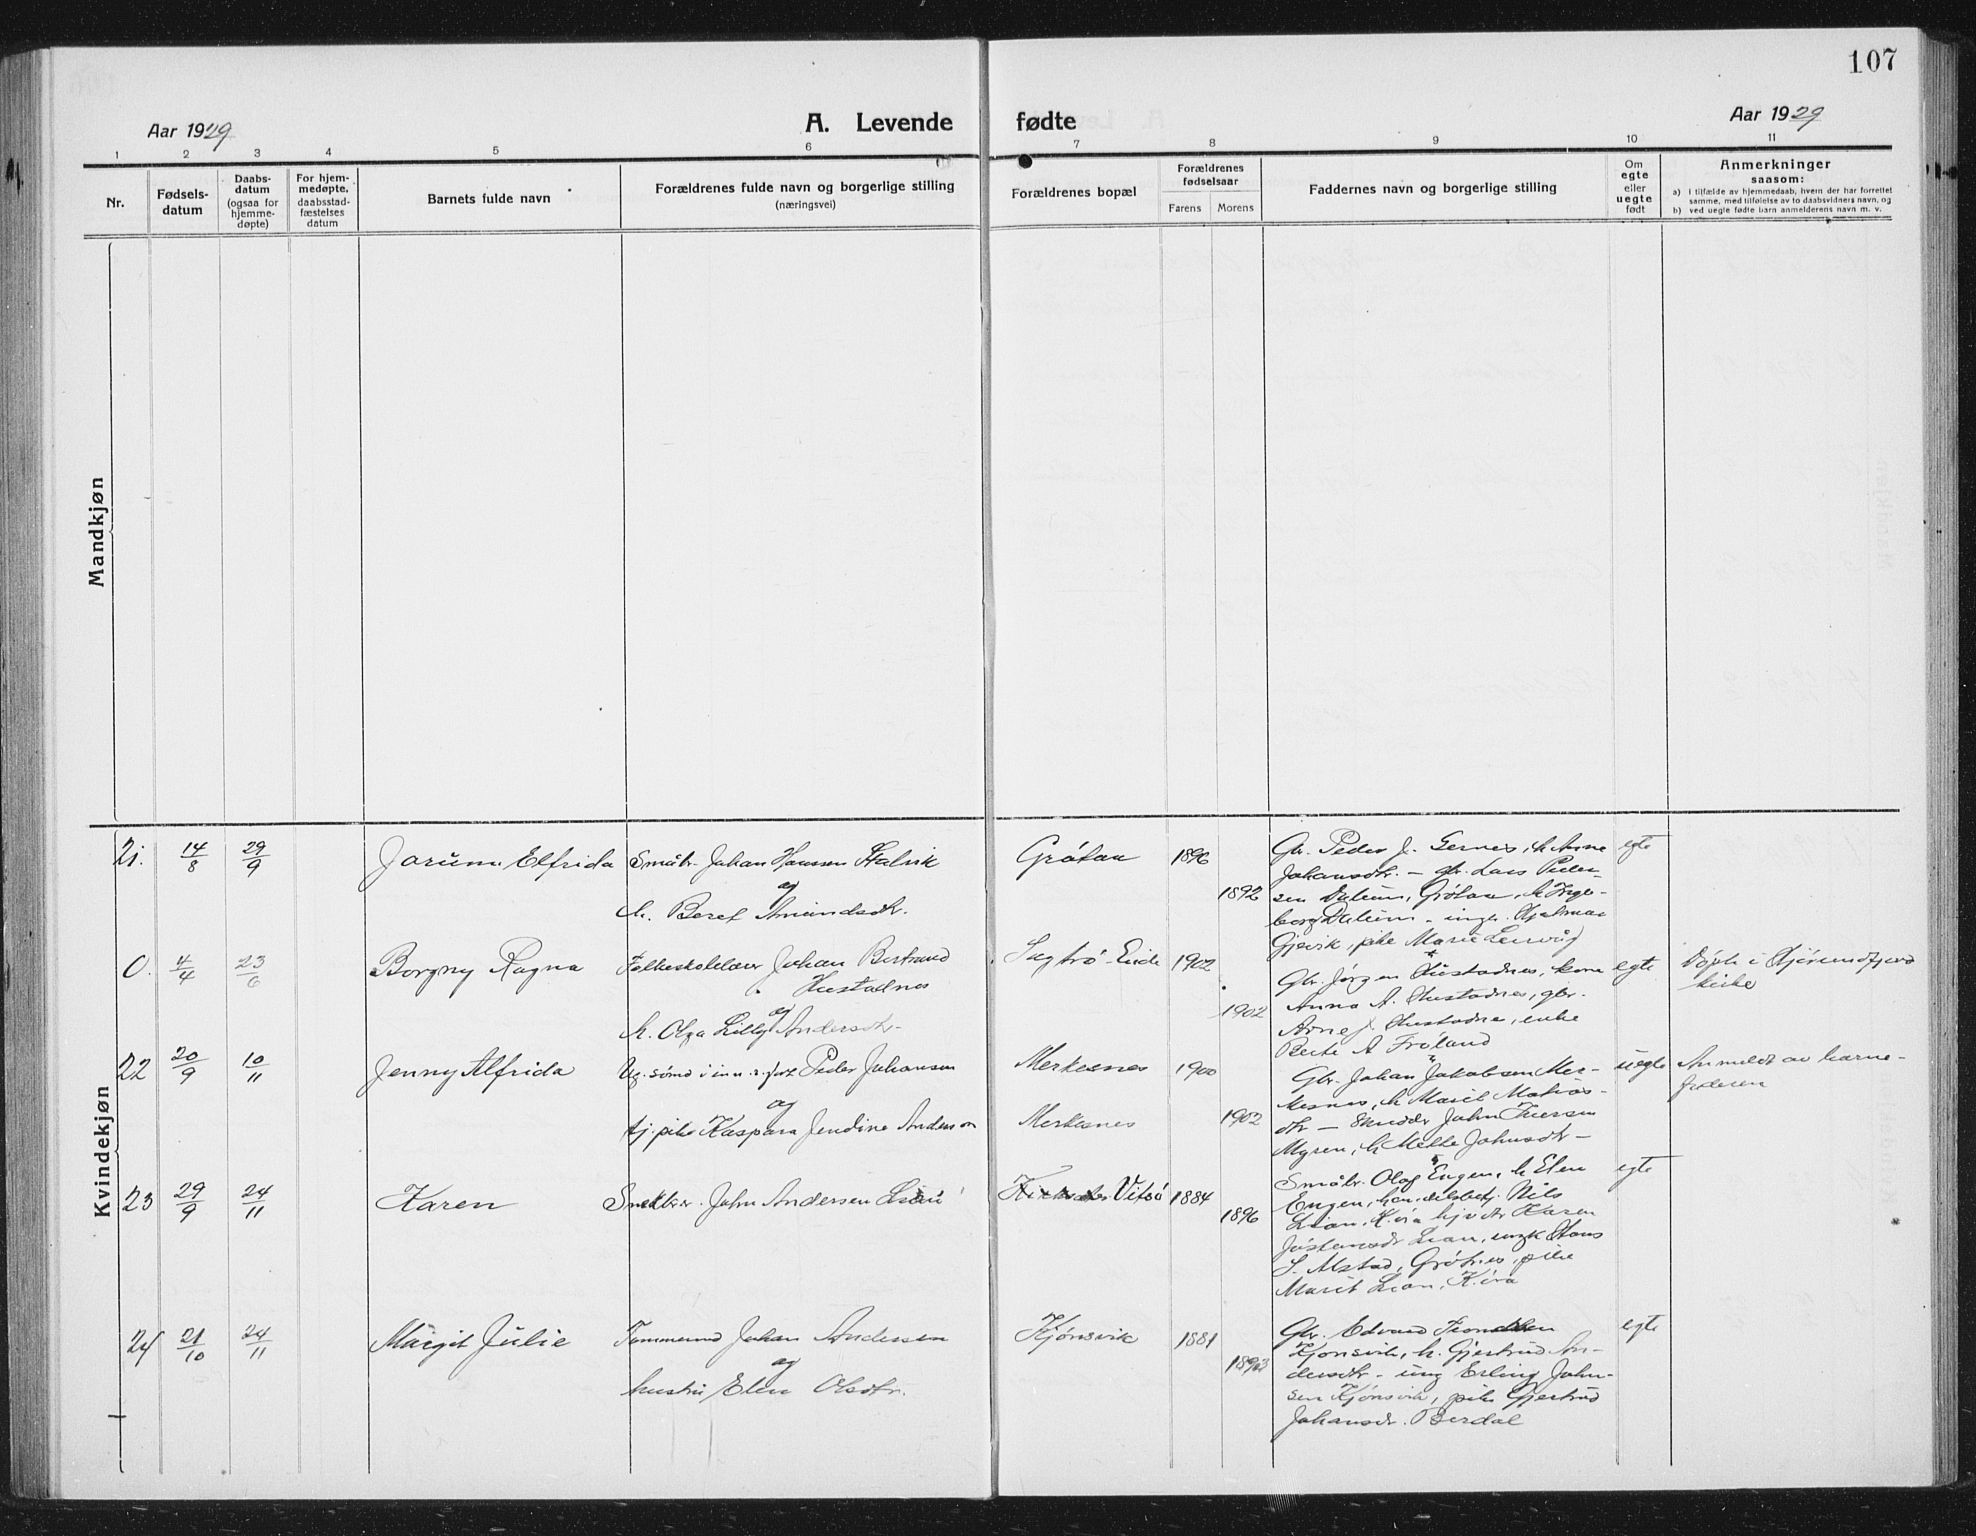 107
Aar 1929
A. Levende fødte
Aar 1929
1 2 3 4 5 6 7 8 9 10 11
Nr.
Fødsels-
datum
Daabs-
datum
(ogsaa for
hjemme-
døpte)
For hjem-
medøpte,
daabsstad-
fæstelses
datum
Barnets fulde navn
Forældrenes fulde navn og borgerlige stilling
(næringsvei)
Forældrenes bopæl
Forældrenes
fødselsaar
Farens Morens
Faddernes navn og borgerlige stilling
Om
egte
eller
uegte
født
Anmerkninger
saasom:
a) i tilfælde av hjemmedaab, hvem der har forrettet
samme, med tilføielse av to daabsvidners navn, og
b) ved uegte fødte barn anmelderens navn m. v.
Mandkjøn
Kvindekjøn
21. 14/8 29/9 Jorunn Elfrida
Småbr. Johan Hanssen
og
h. Beret Amundsdtr.
Grótan 1896
1892
Gbr. Peder J. Gernes, h. Anna
Johansdtr. — gbr. Lars Peder-
sen Dalum, Grótan, h. Inge-
borg Dalum - ungk. Hjalmar
Gjevik, pike Marie
egte
0. 4/4 23/6 Borgny Ragna
Folkeskolelærer Johan Bertrand
Hustadnes
og
h. Olga Lilly Andersdtr.
Eide 1902
1902
Gbr. Jørgen Hustadnes, kone
Anna A. Hustadnes, gbr.
Arne J. Hustadnes, enke
Berte A Fróland
egte
Døpt i Hjørundfjord
kirke
22 20/9 10/11 Jenny Alfrida
Ug. sømd i inn. r. fart Peder Johansen
og
tj. pike Kaspara Jendine Anderson
Merkesnes 1900
Merkesnes 1902
Gbr. Johan Jakobsen Mer-
kesnes, h. Marit Matias-
dtr — John Iversen
Myren, h. Mette Johnsdtr —
uegte
Anmeldt av barne-
faderen
23 29/9 24/11 Karen
John Andersen
Vitsø 1884
1896
Småbr. Olaf Engen, h. Elen
Engen, handelsbetj. Nils
Lian, Karen
Lian, ungk Hans
S. Alstad, pike
Marit Lian,
egte
24 21/10 24/11 Margit Julie
Tømmermd Johan Andersen
og
hustru Elen Olsdtr.
Kjønsvik 1881
1893
Gbr. Edvard
Kjønsvik, h. Gjertrud An-
dersdtr. - ung Erling John-
sen Kjønsvik, pike Gjertrud
Johansdr. Berdal
egte